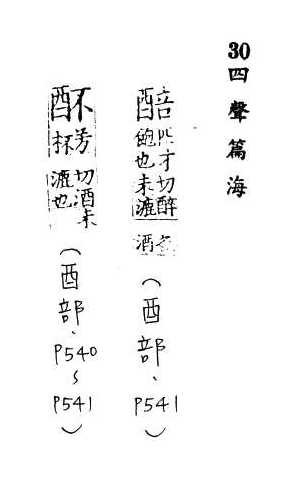 30四聲篇海
醅匹才切醉
飽也未漉
酒
(酉部、P541)
芳杯切酒未漉也
(酉部、P540~P541)